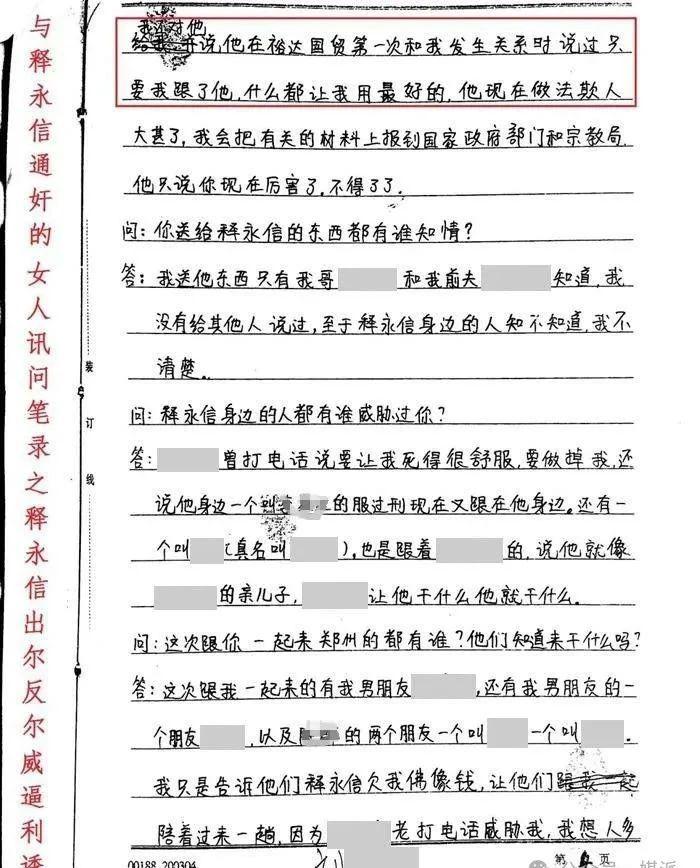 与释永信通奸的女人讯问笔录之释永信出尔反尔威逼利诱
我还对他
给我并说他在裕达国贸第一次和我发生关系时说过只
要我跟了他,什么都让我用最好的,他现在做法欺人
大甚了,我会把有关的材料上报到国家政府部门和宗教局.
他只说你现在厉害了.不得了了.
问:你送给释永信的东西都有谁知情?
答:我送他东西只有我哥 和我前夫 知道,我
没有给其他人说过,至于释永信身边的人知不知道,我不
清楚。
问:释永信身边的人都有谁威胁过你?
答: 曾打电话说要让我死得很舒服,要做掉我,还
说他身边一个 的服过刑现在又跟在他身边。还有一
个叫 (真名叫 ),也是跟着 的,说他就像
的亲儿子, 让他干什么他就干什么.
问:这次跟你一起来郑州的都有谁?他们知道来干什么吗?
答:这次跟我一起来的有我男朋友 ,还有我男朋友的一
个朋友 ,以及 的两个朋友一个叫 一个叫 .
我只是告诉他们释永信欠我佛像钱,让他们跟我一起
陪着过来一趟,因为 老打电话威胁我,我想人多
装
订
线
00188 200304
第 页